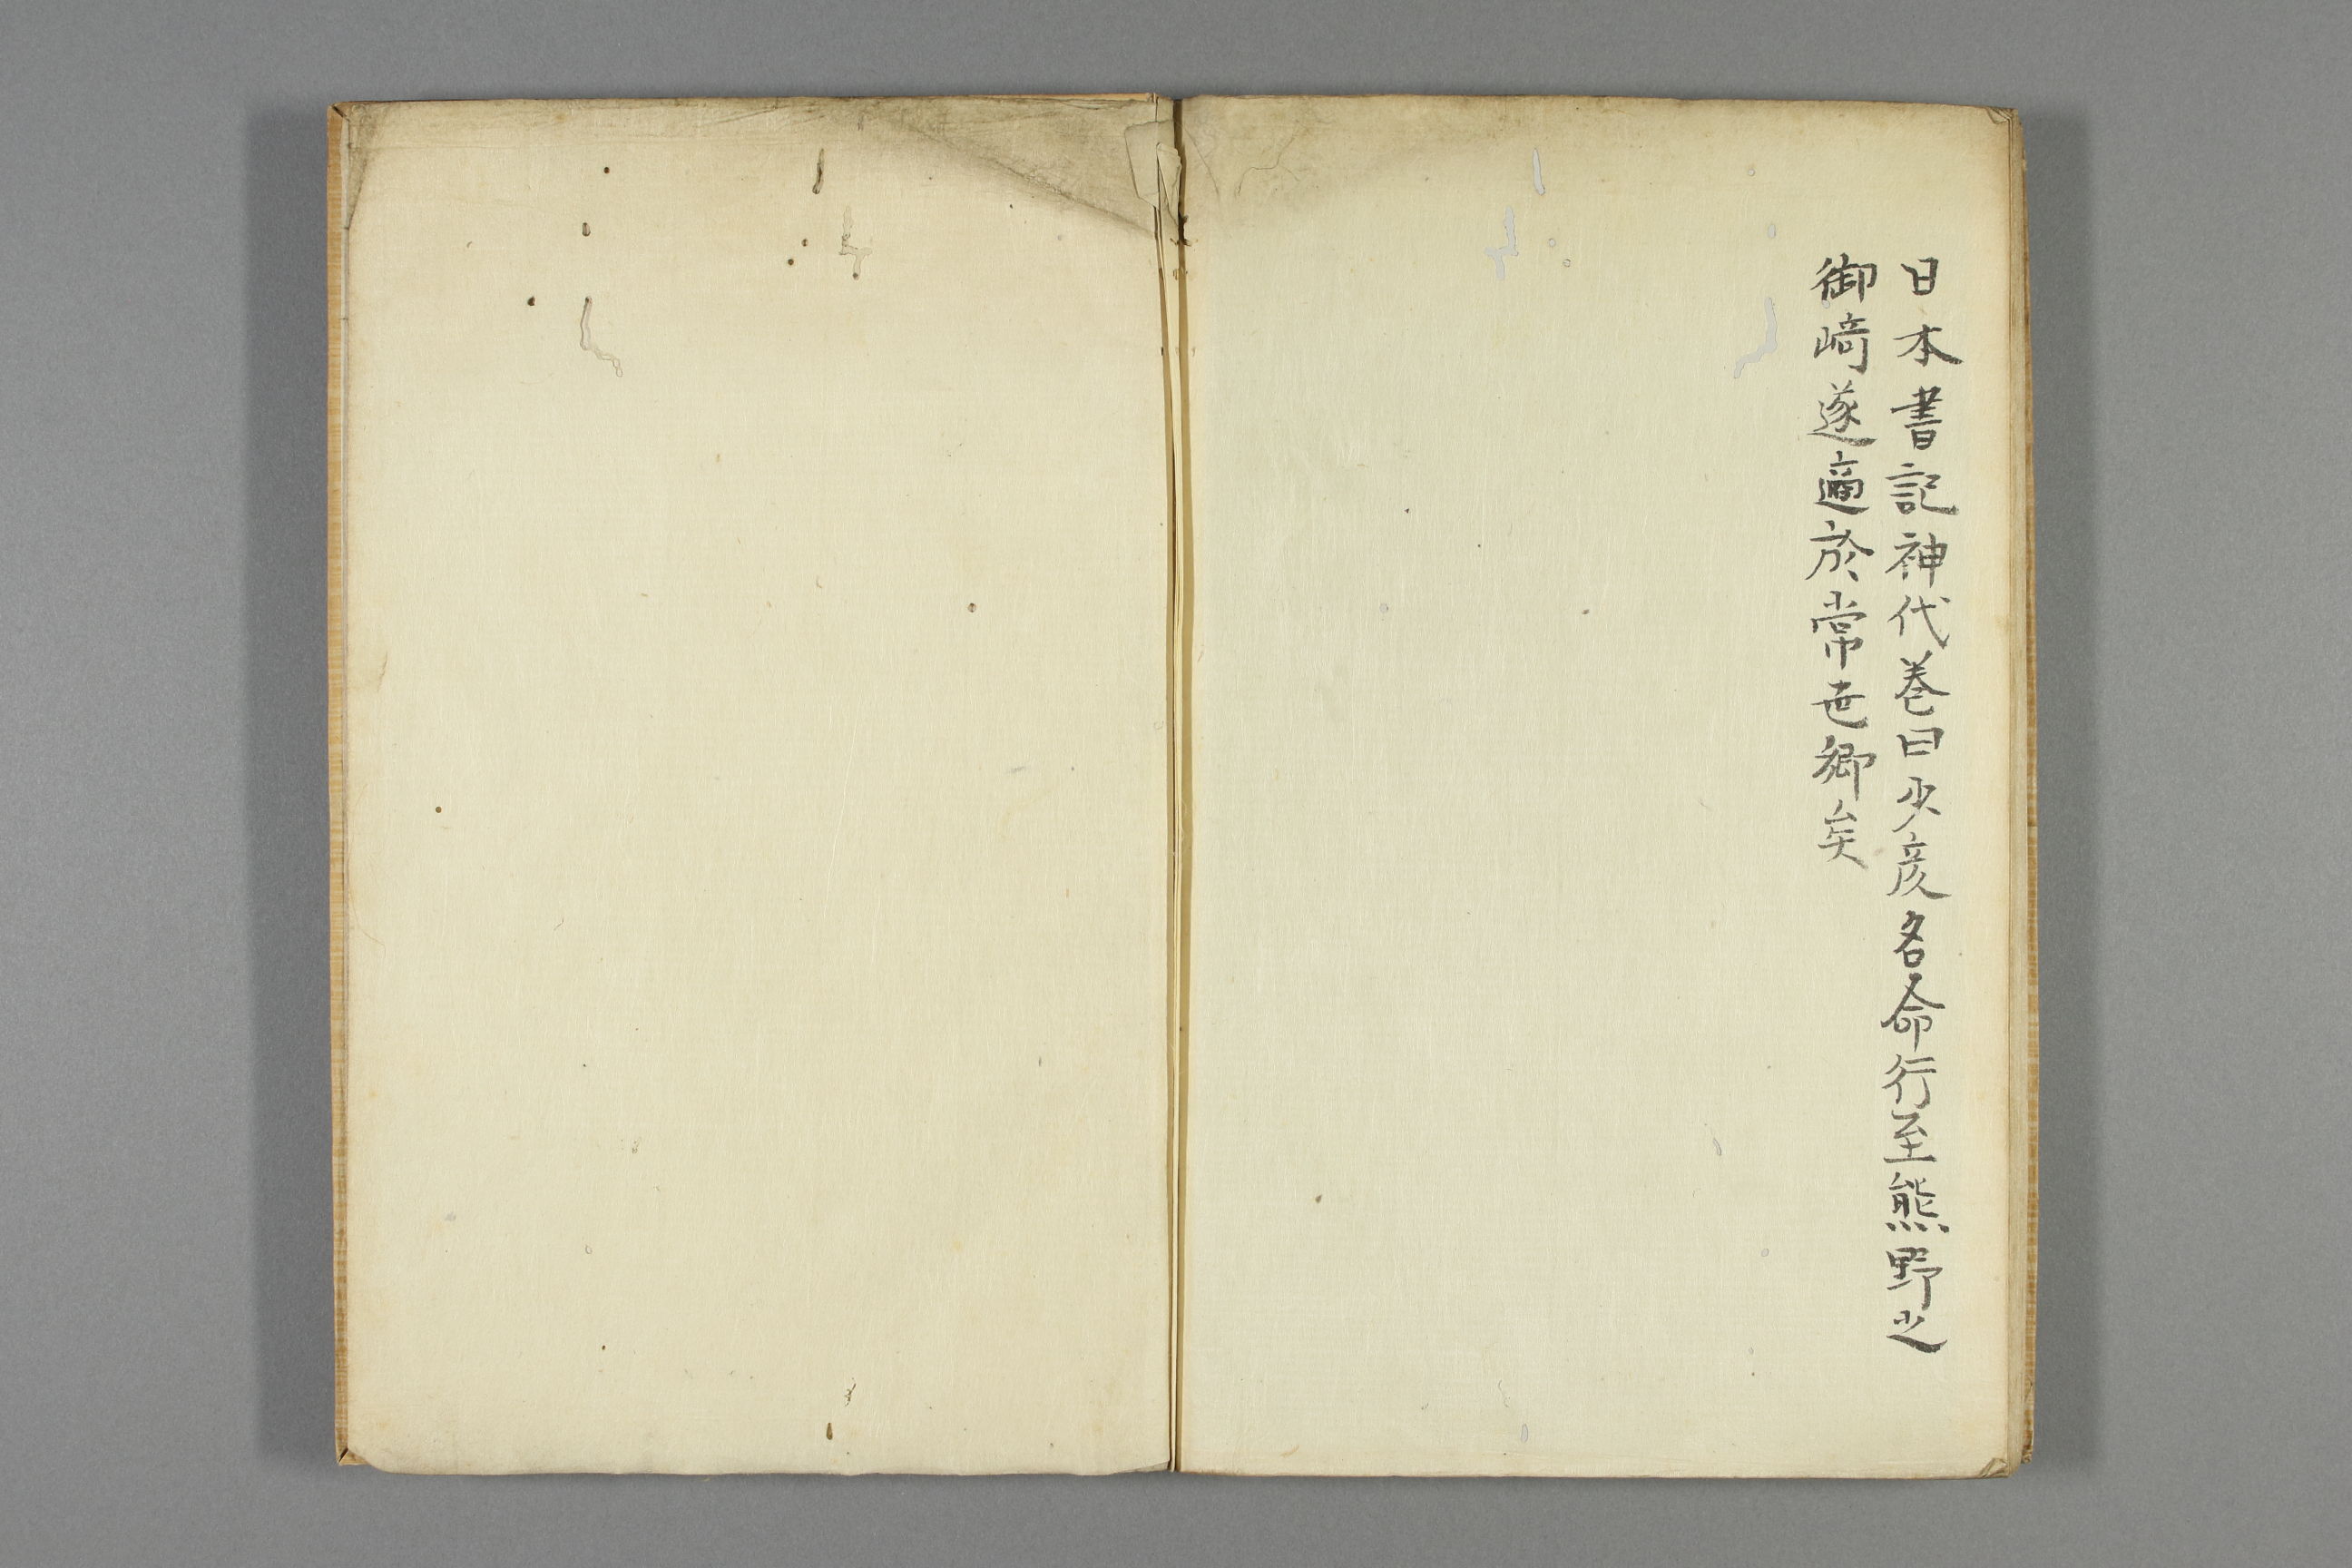 日本書記神代巻曰少彦名命行至熊野之
御﨑遂適於常世郷矣